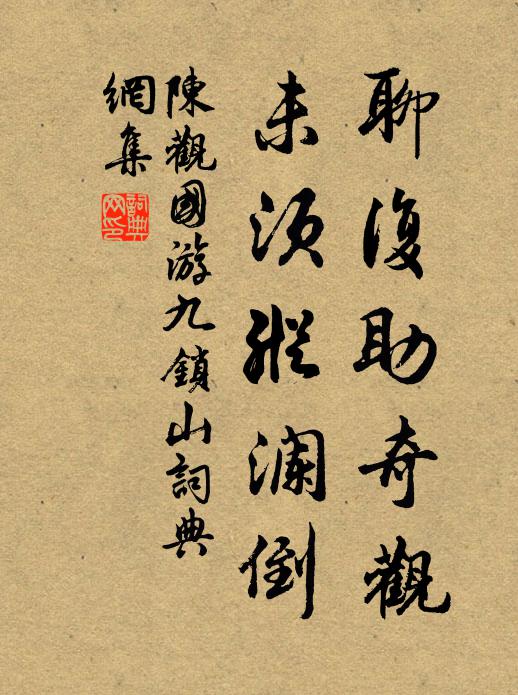 聊復助奇觀
未須縱瀾倒
陳觀國游九鎖山詞典
網集
詞典网印